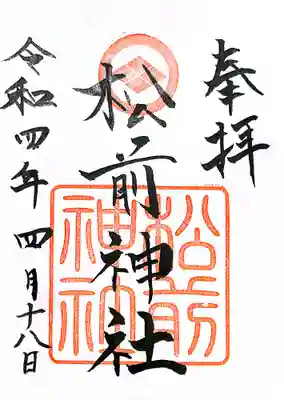 奉拝
松前神社
令和四年四月十八日
松前
神社